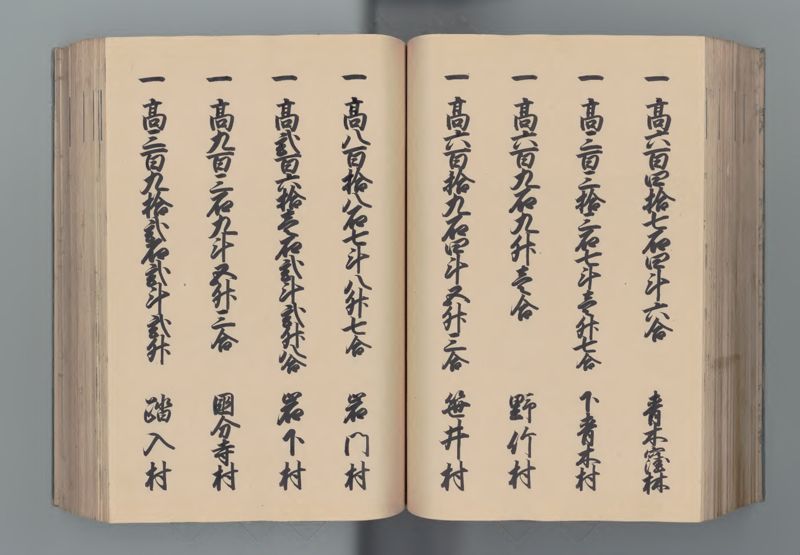 一 高六百四拾七石四斗六合 青木窪村
一 高三百三拾三石七斗壱升七合 下青木村
一 高六百九石九升壱合 野竹村
一 高六百拾九石四斗五升三合 笹井村
一 高八百拾八石七斗八升七合 岩門村
一 高弐百六拾壱石弐斗弐升八合 岩下村
一 高九百三石九斗五升三合 國分寺村
一 高三百九拾弐石弐斗弐升 踏入村